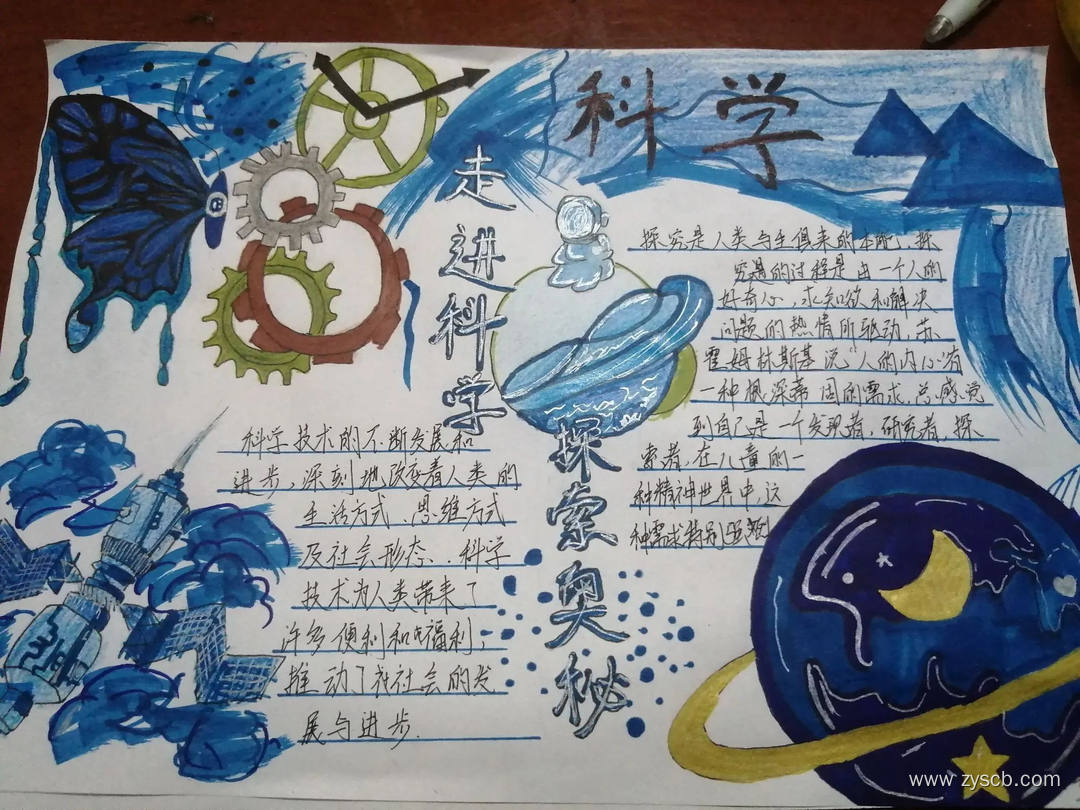 科学
走进科学
探索奥秘
科学技术的不断发展和
进步，深刻地改变着人类的
生活方式、思维方式
及社会形态、科学
技术为人类带来了
许多便利和福利，
推动了我社会的发
展与进步.
探究是人类与生俱来的本能，探
究的过程是由一个人的
好奇心，求知欲和解决
问题的热情所驱动，苏
霍姆林斯基说"人的内心有
一种根深蒂固的需求，总感觉
到自己是一个发现者，研究者，探
索者，在儿童的一
种精神世界中，这
种需求特别强烈
www.zyscb.com